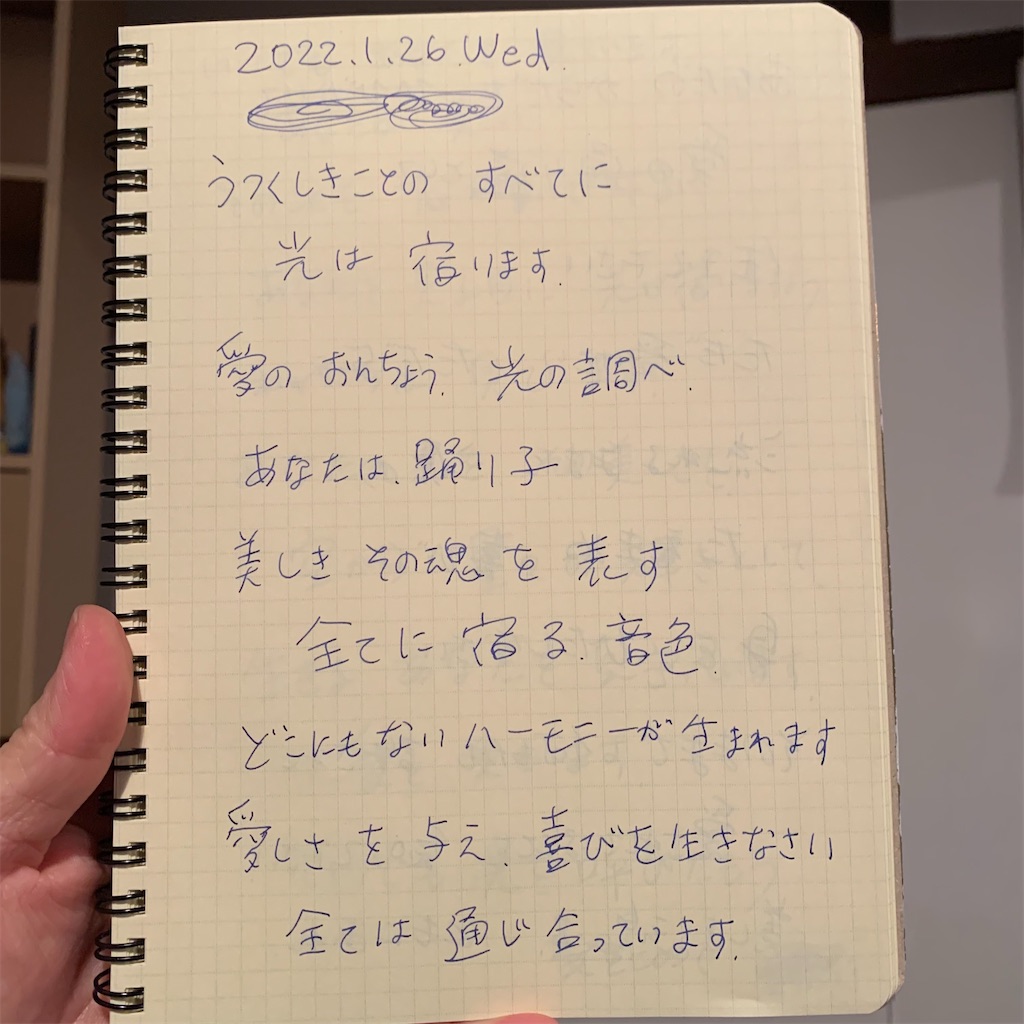 2022.1.26.Wed.
うつくしきことの すべてに
光は 宿ります.
愛の おんちょう. 光の調べ.
あなたは.踊り子
美しき その魂を 表す
全てに 宿る.音色.
どこにもないハーモニーが生まれます
愛しさを与え.喜びを生きなさい
全ては 通じ合っています.